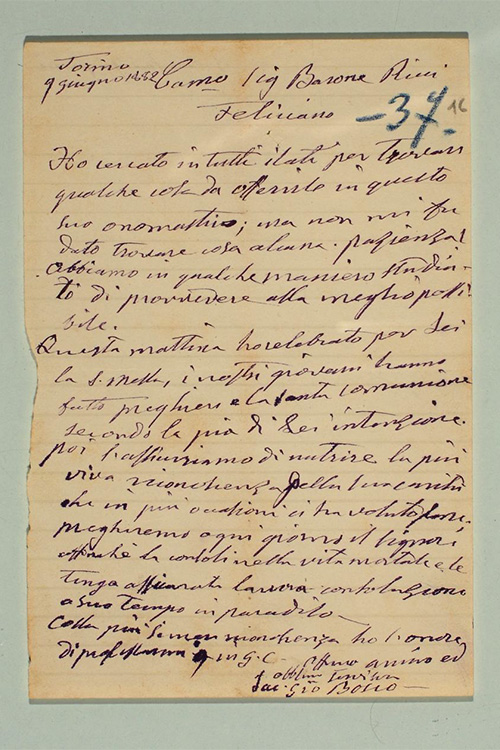 Torino
9 giugno 1882 Car.mo Sig Barone Ricci
Feliciano
-37- 16
Ho cercato in tutti i lati per trovare
qualche cosa da offerirlo in questo
suo onomastico; ma non mi fu
dato trovare cosa alcuna. pazienza!
Abbiamo in qualche maniera studia-
to di provvedere alla meglio possi
bile.
Questa mattina ho celebrato per Lei
la s. messa, i nostri giovani hanno
fatto preghiere e la santa comunione
secondo la pia di Lei intenzione.
poi l'assicuriamo di nutrire la più
viva riconoscenza della sua carità
che in più occasioni ci ha voluto fare.
pregheremo ogni giorno il Signore
affinché la consoli nella vita mortale e le
tenga assicurata la vera consolazione
a suo tempo in paradiso.
Colla più riconoscenza ho l'onore
di professarmi in G. C.
Aff.mo amico ed
obbl.mo servitore
Sac. Gio Bosco